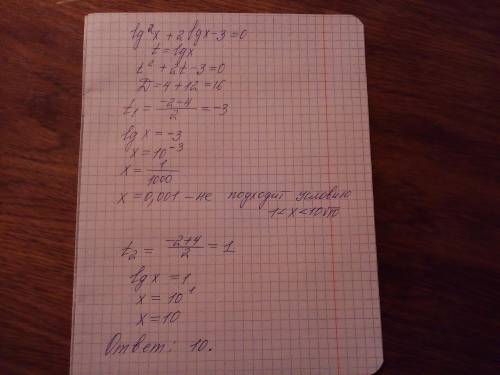 lg²x + 2lgx - 3 = 0
t = lgx
t² + 2t - 3 = 0
D = 4 + 12 = 16
t₁ = (-2-4)/2 = -3
lgx = -3
x = 10⁻³
x = 1/1000
x = 0,001 - не подходит условию
1 < x < 10√10
t₂ = (-2+4)/2 = 1
lgx = 1
x = 10¹
x = 10
Ответ: 10.